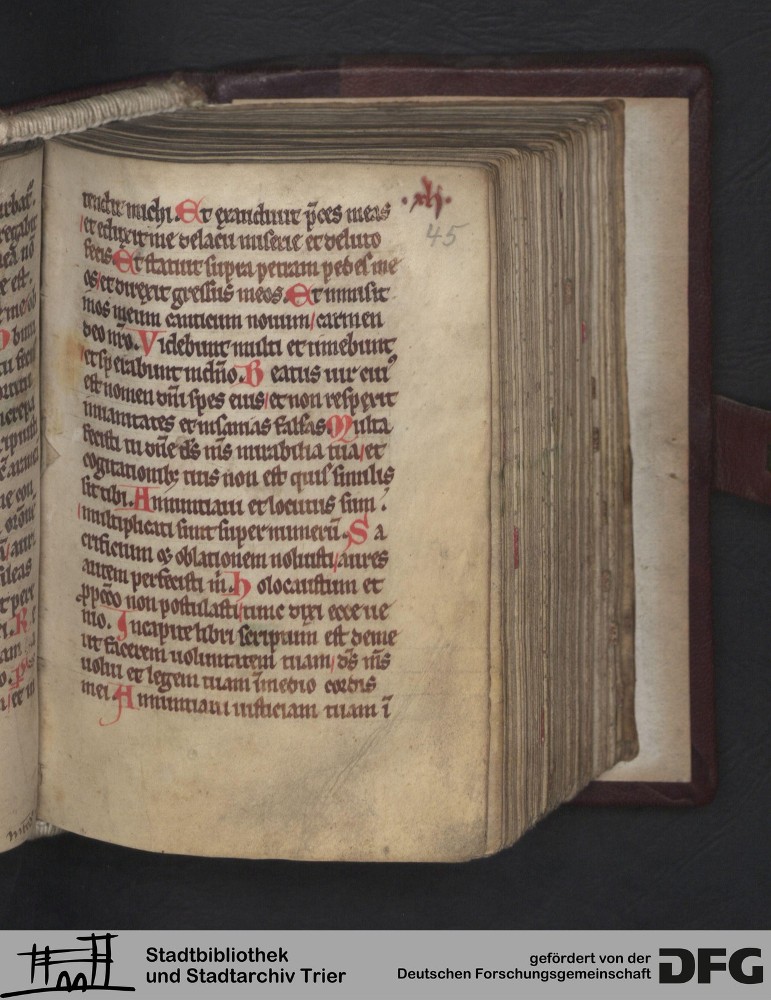 tendit michi. Et exaudiuit p̄ces meas
et eduxit me de lacu miserie et de luto
fecis Et statuit supra petram pedes me
os/et direxit gressus meos. Et inmisit
in os meum canticum nouum/carmen
deo nr̄o. Videbunt multi et timebunt
/et sperabunt in dn̄o. Beatus uir cui9
est nomen dn̄i spes eius/et non respexit
inuanitates et insanias falsas Multa
fecisti tu dn̄e ds̄ ms̄ mirabilia tua/et
cogitationibꝫ tuis non est quis similis
sit tibi. Annuntiaui et locutus sum:
/multiplicati sunt super numerū. Sa
crificium & oblationem noluisti/aures
autem perfecisti m̄. Holocaustum et
ꝓ pctō non postulasti/tunc dixi ecce ue
nio. In capite libri scriptum est de me
ut facerem uoluntatem tuam/ds̄ ms̄
uolui et legem tuam ī medio cordis
mei Annuntiaui iusticiam tuam ī
45
Stadtbibliothek
und Stadtarchiv Trier
gefördert von der
Deutschen Forschungsgemeinschaft
DFG